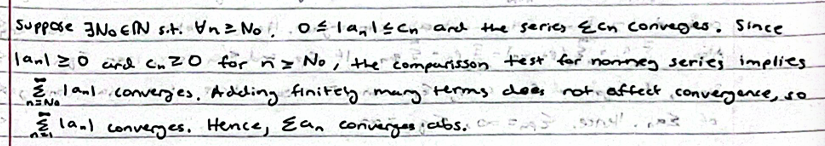 Suppose ∃N₀∈ℕ s.t. ∀n≥N₀, 0≤|aₙ|≤cₙ and the series Σcₙ converges. Since
|aₙ|≥0 and cₙ≥0 for n≥N₀, the comparisson test for nonneg series implies
∞Σn=N₀ |aₙ| converges. Adding finitely many terms does not affect convergence, so
∞Σn=1 |aₙ| converges. Hence, Σaₙ converges abs.